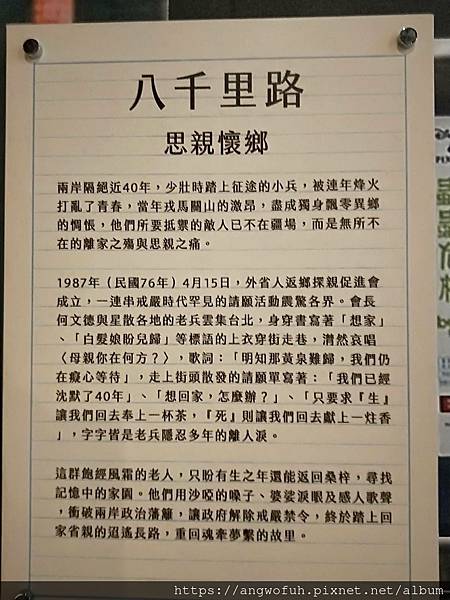 八千里路
思親懷鄉
兩岸隔絕近40年，少壯時踏上征途的小兵，被連年烽火
打亂了青春，當年戎馬關山的激昂，盡成獨身飄零異鄉
的惆悵，他們所要抵禦的敵人已不在疆場，而是無所不
在的離家之殤與思親之痛。
1987年（民國76年）4月15日，外省人返鄉探親促進會
成立，一連串戒嚴時代罕見的請願活動震驚各界。會長
何文德與星散各地的老兵雲集台北，身穿書寫著「想家」
、「白髮娘盼兒歸」等標語的上衣穿街走巷，潸然哀唱
〈母親你在何方？〉，歌詞：「明知那黃泉難歸，我們仍
在癡心等待」，走上街頭散發的請願單寫著：「我們已經
沈默了40年」、「想回家，怎麼辦？」、「只要求『生』
讓我們回去奉上一杯茶，『死』則讓我們回去獻上一炷香
」，字字皆是老兵隱忍多年的離人淚。
這群飽經風霜的老人，只盼有生之年還能返回桑梓，尋找
記憶中的家園。他們用沙啞的嗓子、婆娑淚眼及感人歌聲
，衝破兩岸政治藩籬，讓政府解除戒嚴禁令，終於踏上回
家省親的迢遙長路，重回魂牽夢繫的故里。
https://angwofuh.pixnet.net/album